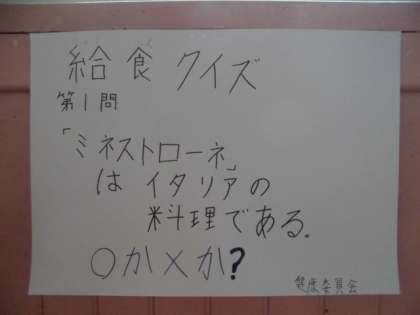 給食クイズ
第1問
「ミネストローネ」
はイタリアの
料理である.
○か×か?
健康委員会